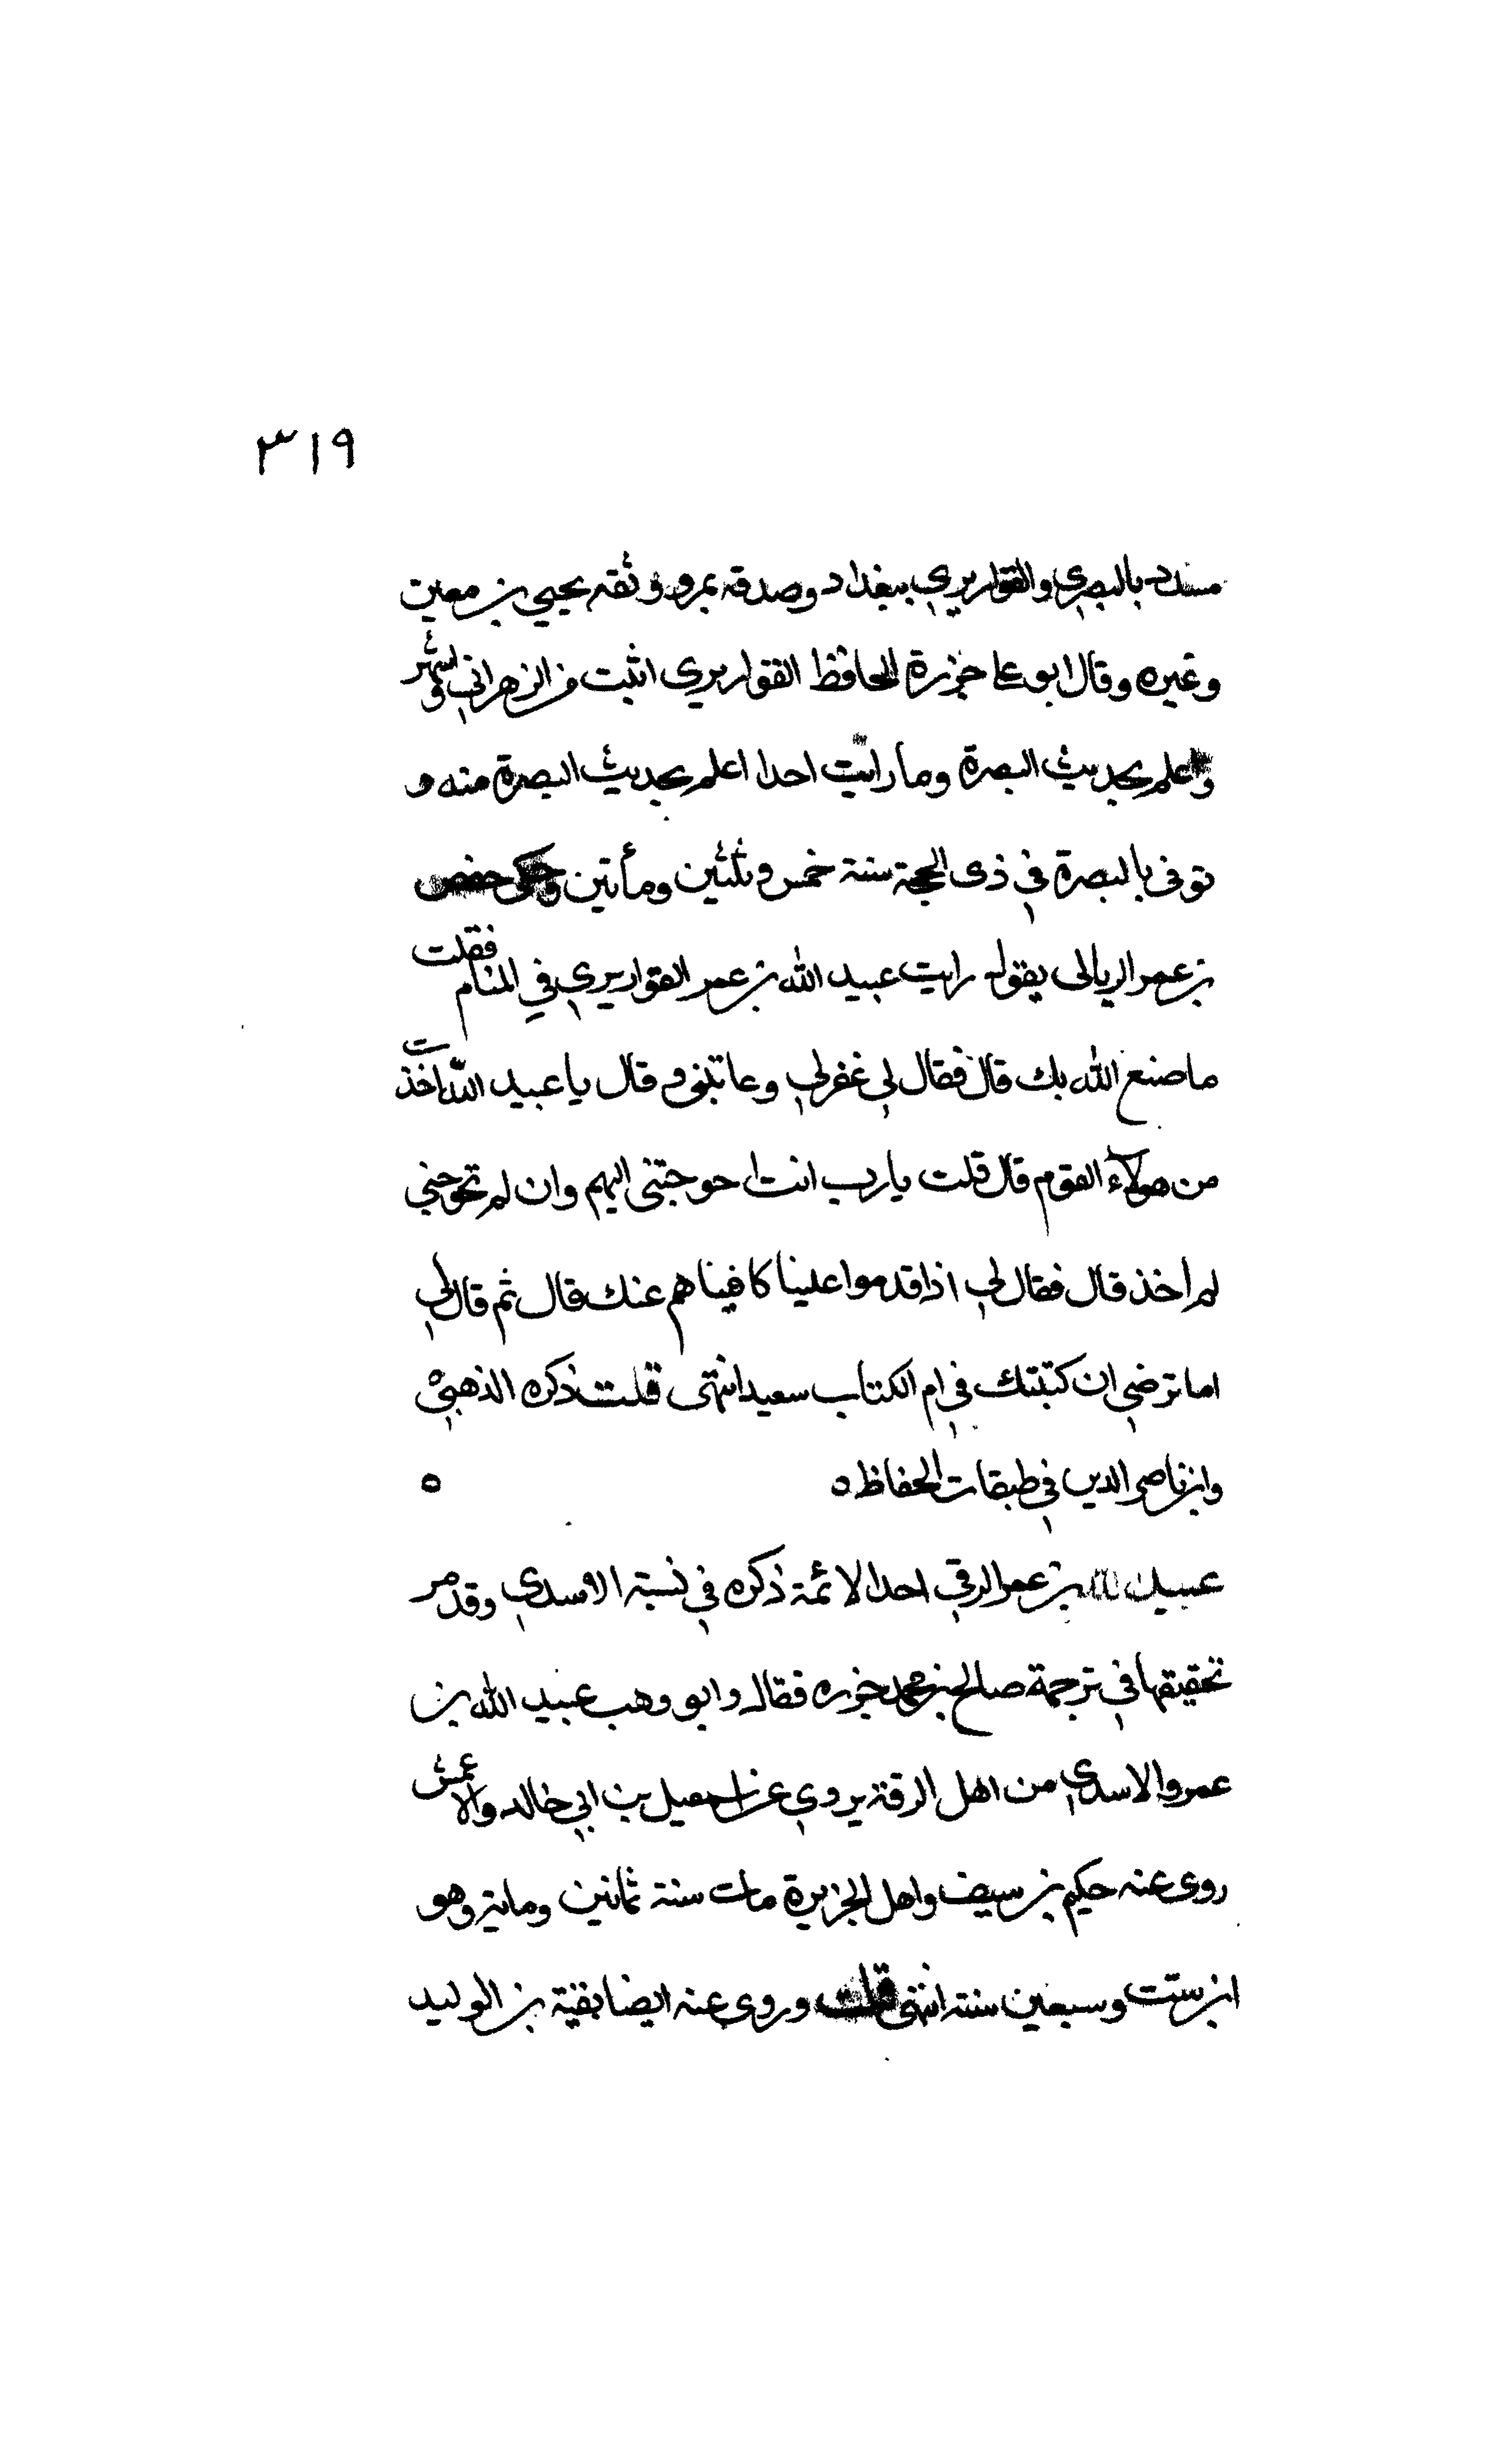 ٣١٩
مسدد بالبصرى والقواريري ببغداد وصدقه بمرو وثقه يحيي بن معين
وغيره وقال ابو على جزرة الحافظ القواريري اثبت من الزهراني واشهر
واعلم بحديث البصرة وما رايت احدا اعلم بحديث البصرة منه و
توفى بالبصرة في ذى الحجة سنة خمس وثلثين ومأتين وحكى حفص
بن عمر الربالى يقول رايت عبيد الله بن عمر القواريري في المنام فقلت
ما صنع الله بك قال فقال لي غفر لي وعاتبنى وقال يا عبيد الله اخذت
من هولآء القوم قال قلت يا رب انت احوجتنى اليهم وان لم تحوجني
لم اخذ قال فقال لي اذا قدموا علينا كافيناهم عنك قال ثم قال لي
اما ترضي ان كتبتك في ام الكتاب سعيدا انتهى قلت ذكره الذهبي
وابن ناصر الدين في طبقات الحفاظ ٥ ٥
عبيد الله بن عمر الرقي احد الائمة ذكره في نسبة الاسدي وقد مر
تحقيقها في ترجمة صالح بن محمد جزره فقال وابو وهب عبيد الله بن
عمرو الاسدي من اهل الرقة يروي عن اسمعيل بن ابي خالد والاعمش
روى عنه حكيم بن سيف واهل الجزيرة مات سنة ثمانين ومايه وهو
ابن ست وسبعين سنة انتهى قلت وروى عنه ايضا بقية بن الوليد